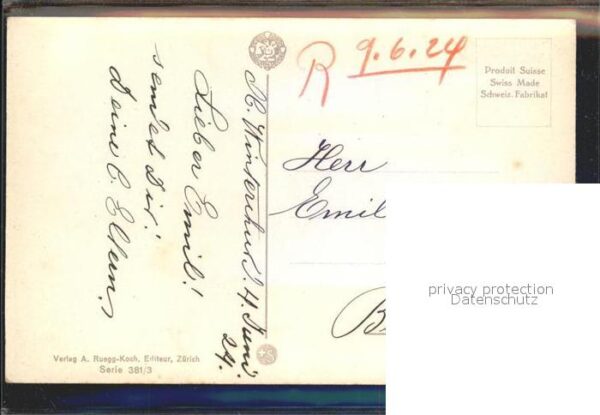 R 9.6.24
Produit Suisse
Swiss Made
Schweiz. Fabrikat
Winterthur d. 4. Juni
24.
Lieber Emil!
sendet Dir!
Deine l. Eltern.
Herr
Emil
privacy protection
Datenschutz
Verlag A. Ruegg-Koch, Editeur, Zürich
Serie 381/3